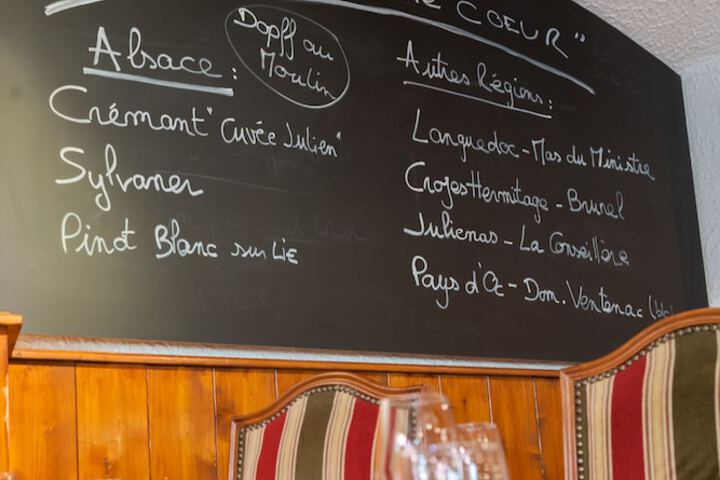 CŒUR"
Alsace :
Dopff au
Moulin
Crémant "Cuvée Julien"
Sylvaner
Pinot Blanc sur Lie
Autres Régions :
Languedoc - Mas du Ministre
Crozes Hermitage - Brunel
Julienas - La Conseillère
Pays d'Oc - Dom. Ventenac